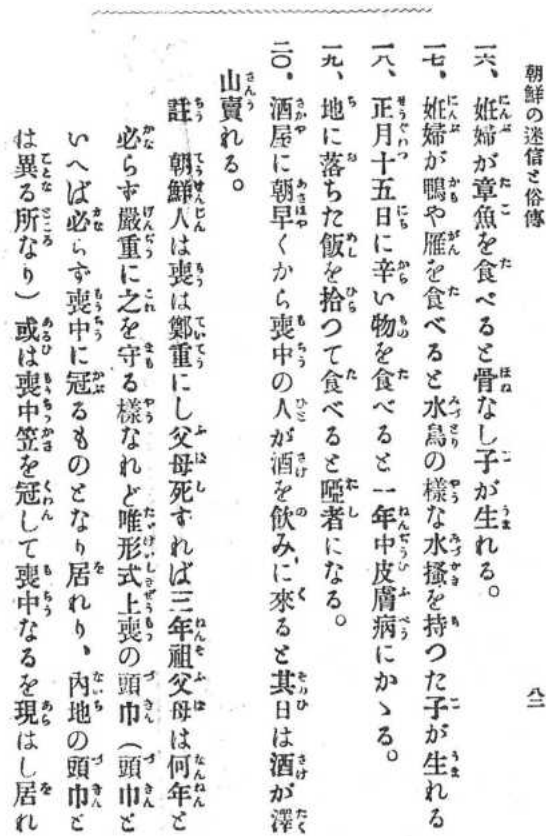 朝鮮の迷信と俗傳
八二
一六、姙婦が章魚を食べると骨なし子が生れる。
一七、姙婦が鴨や雁を食べると水鳥の樣な水搔を持つた子が生れる
一八、正月十五日に辛い物を食べると一年中皮膚病にかゝる。
一九、地に落ちた飯を拾つて食べると啞者になる。
二〇、酒屋に朝早くから喪中の人が酒を飮みに來ると其日は酒が澤
山賣れる。
註　朝鮮人は喪は鄭重にし父母死すれば三年祖父母は何年と
必らず嚴重に之を守る樣なれど唯形式上喪の頭巾（頭巾と
いへば必らず喪中に冠るものとなり居れり、內地の頭巾と
は異る所なり）或は喪中笠を冠して喪中なるを現はし居れ